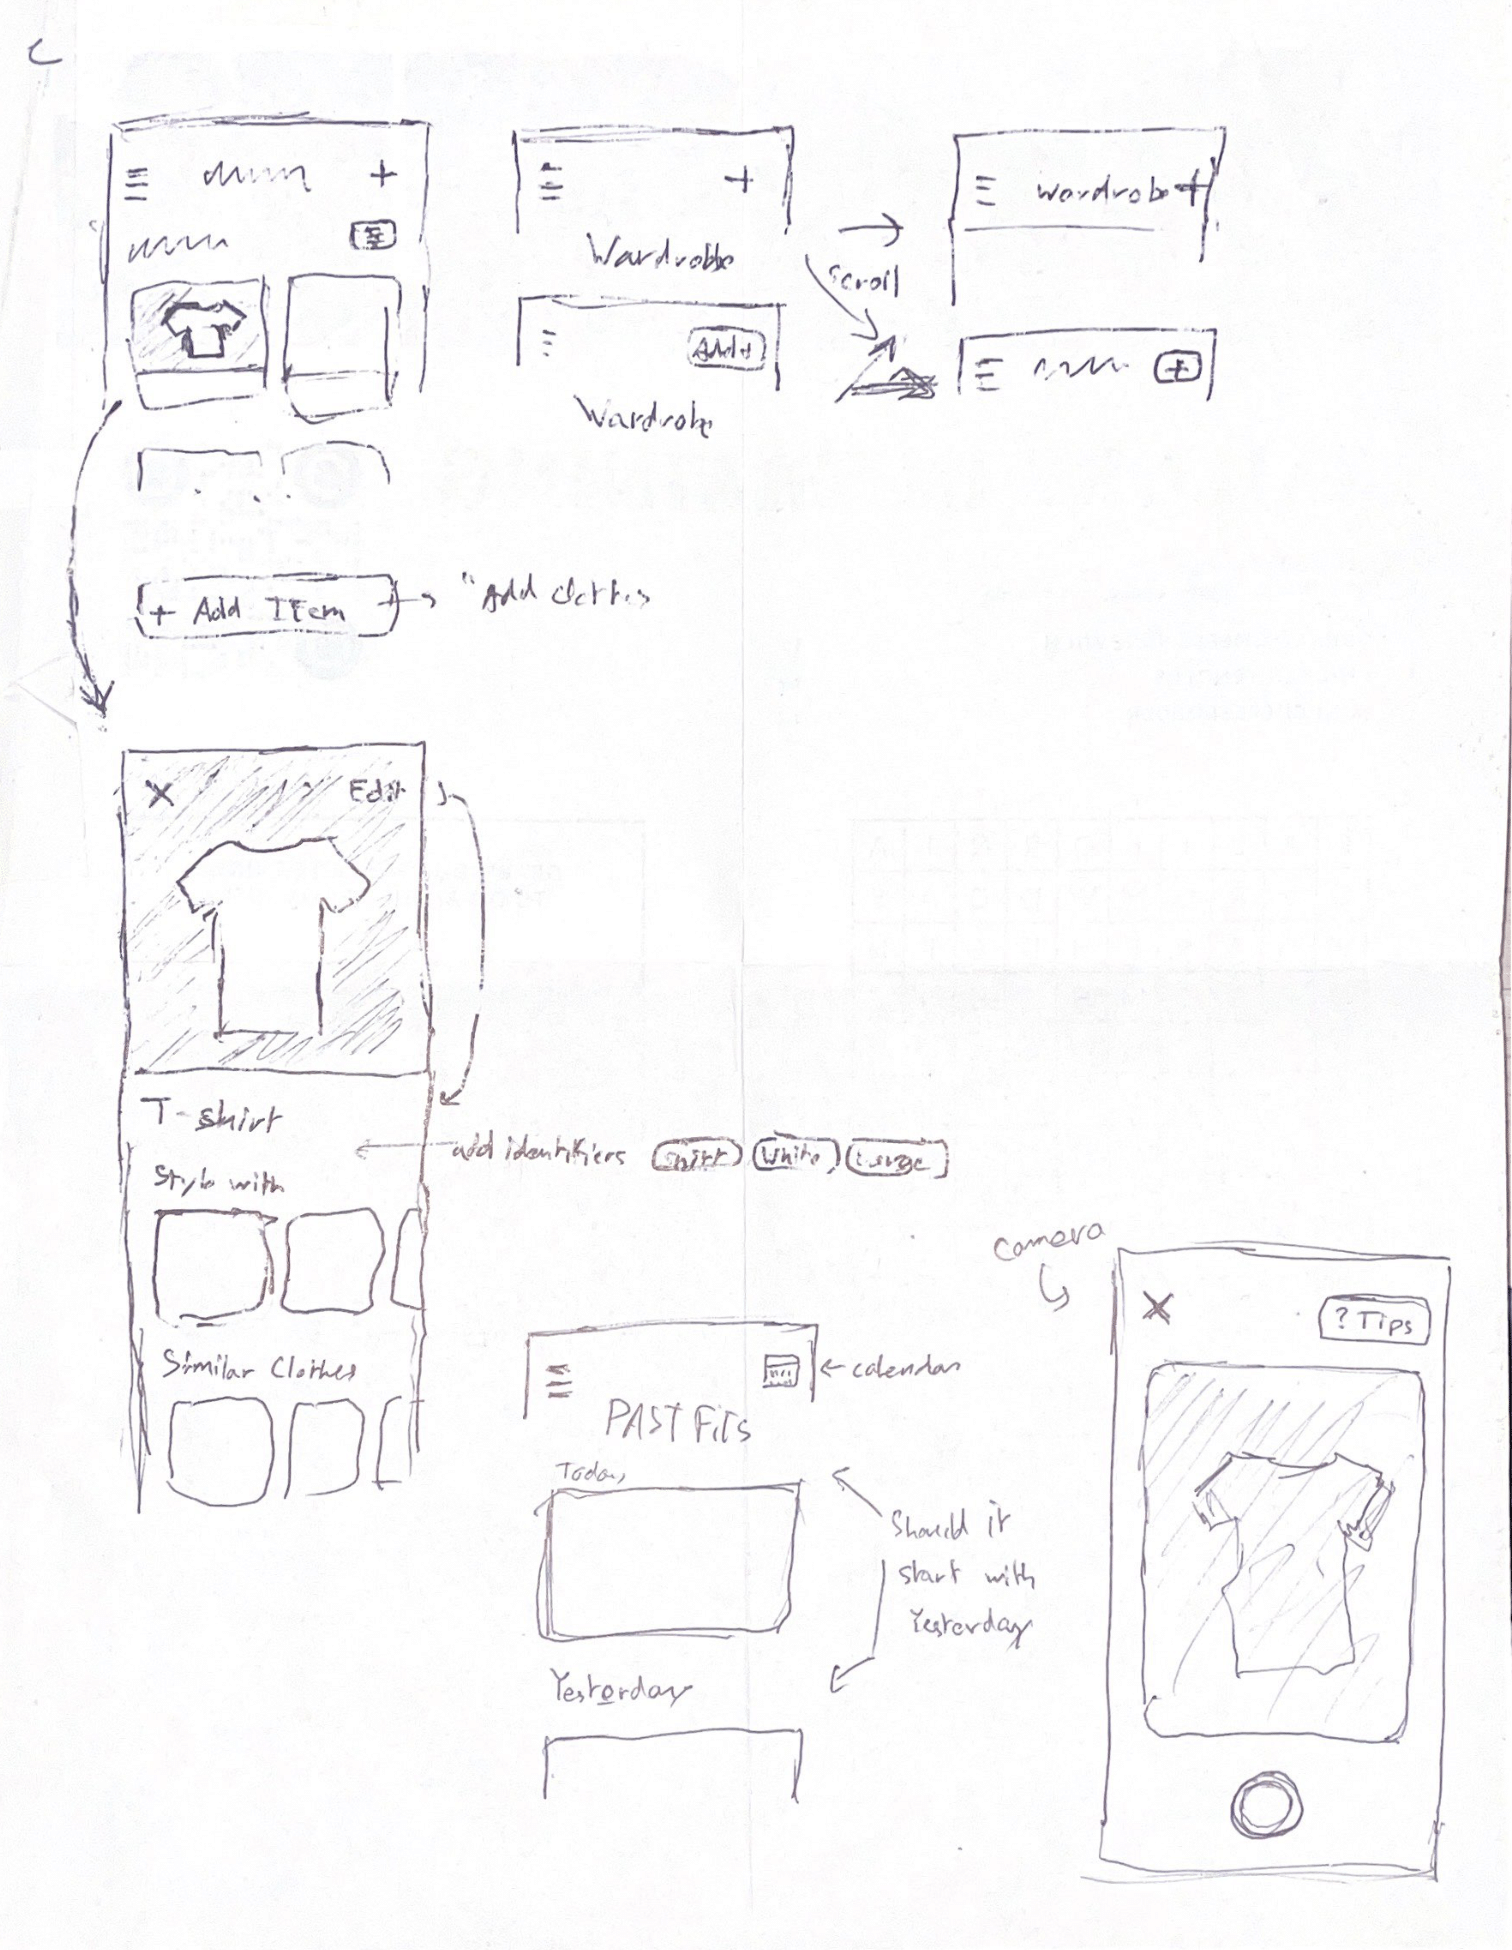 +
Wardrobe
Add +
Wardrobe
Scroll
Wardrobe +
+
+ Add Item
"Add clothes
X
Edit
T-shirt
add identifiers
Shirt
White
Large
Style with
Similar Clothes
PAST FITS
calendar
Today
Should it
start with
Yesterday
Yesterday
Camera
X
? Tips